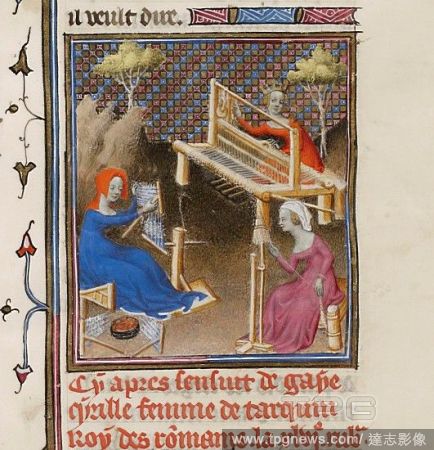 il veult dire.
Cy apres sensuit de gaye
cyrille femme de tarquin
Roy des rommains
www.tpgnews.com / 達志影像